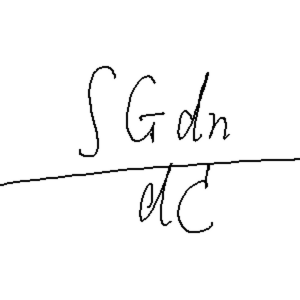 ∫ G dn
dC